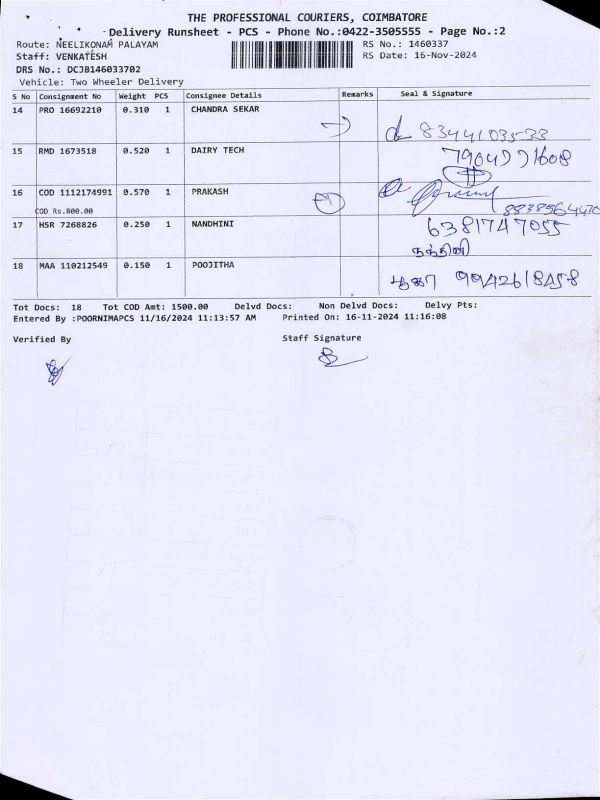 THE PROFESSIONAL COURIERS, COIMBATORE
Delivery Runsheet - PCS - Phone No.:0422-3505555 - Page No.:2
Route: NEELIKONAM PALAYAM
RS No.: 1460337
Staff: VENKATESH
RS Date: 16-Nov-2024
DRS No.: DCJB146033702
Vehicle: Two Wheeler Delivery
S No Consignment No Weight PCS Consignee Details Remarks Seal & Signature
14 PRO 16692210 0.310 1 CHANDRA SEKAR
8344103533
15 RMD 1673518 0.520 1 DAIRY TECH
16 COD 1112174991 0.570 1 PRAKASH
COD Rs.800.00
17 HSR 7268826 0.250 1 NANDHINI 6381747055
நந்தினி
18 MAA 110212549 0.150 1 POOJITHA
பூஜா 9942618458
Tot Docs: 18 Tot COD Amt: 1500.00 Delvd Docs: Non Delvd Docs: Delvy Pts:
Entered By :POORNIMAPCS 11/16/2024 11:13:57 AM Printed On: 16-11-2024 11:16:08
Verified By Staff Signature